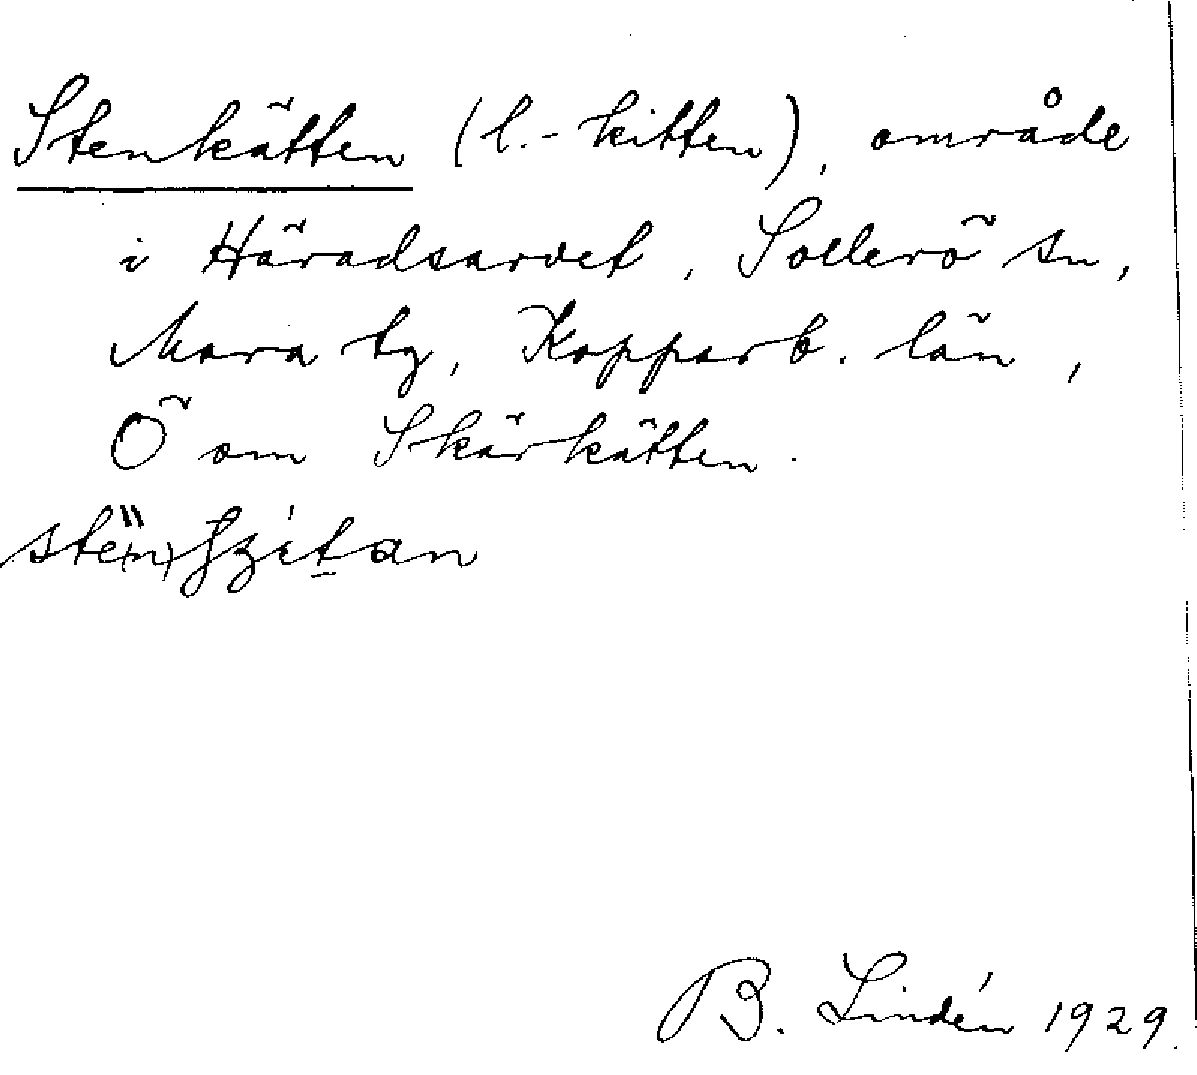 Stenkätten (l. -kitten), område
i Häradsarvet, Sollerö sn,
Mora tg, Kopparb. län,
Ö om Skärkätten.
B. Lindén 1929.